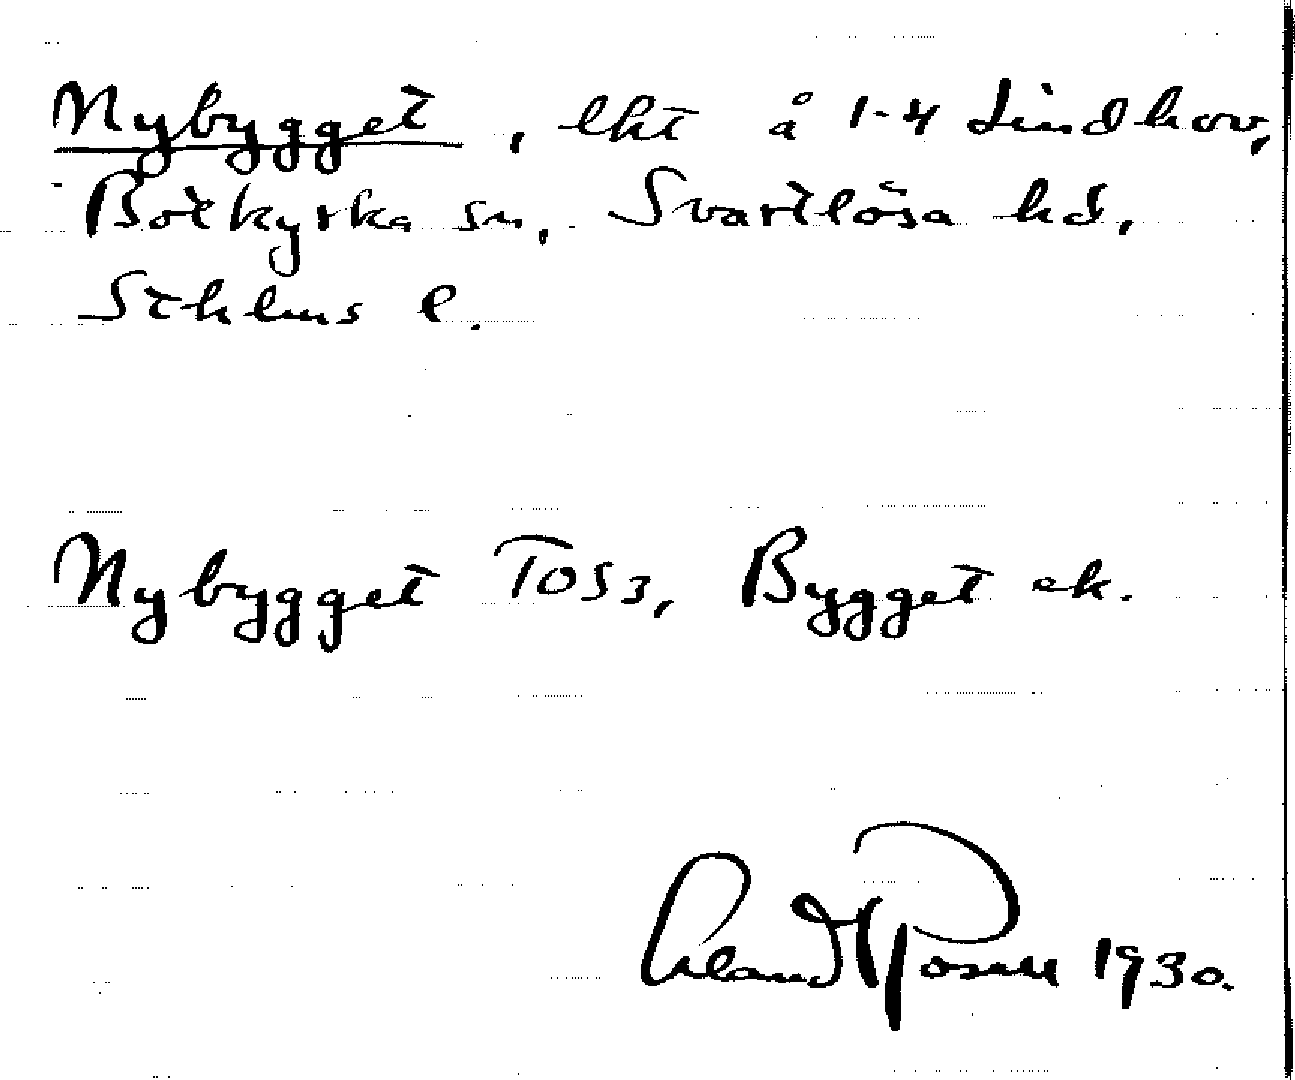 Nybygget, lht å 1-4 Lindhov,
Botkyrka sn, Svartlösa hd,
Sthlms l.
Nybygget TOS3, Bygget ek.
Erland Rosell 1930.